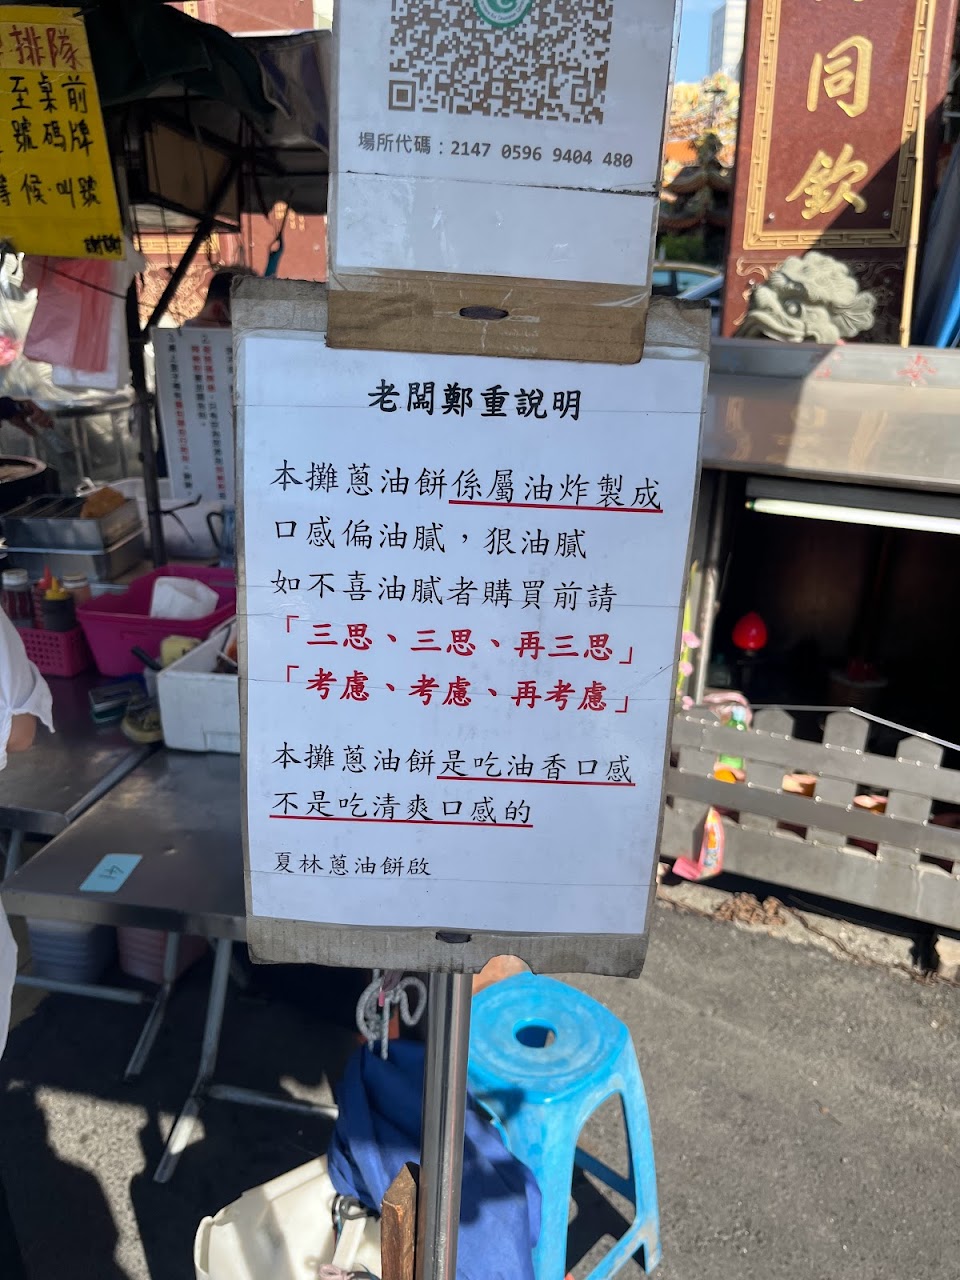 排隊
至桌前
號碼牌
等候·叫號
謝謝
場所代碼：2147 0596 9404 480
同
欽
老闆鄭重說明
本攤蔥油餅係屬油炸製成
口感偏油膩，狠油膩
如不喜油膩者購買前請
「三思、三思、再三思」
「考慮、考慮、再考慮」
本攤蔥油餅是吃油香口感
不是吃清爽口感的
夏林蔥油餅啟
41